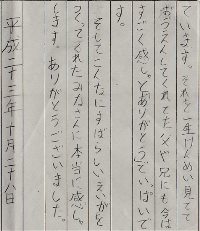 ています。それを一生けんめい見てて
おうえんしてくれてた父や兄にも今は
すごく感しゃとありがとうでいっぱいで
す。
そしてこんなにすばらしいえいがを
つくってくれたみなさんに本当に感しゃ
します。ありがとうございました。
平成二十三年十月二十八日